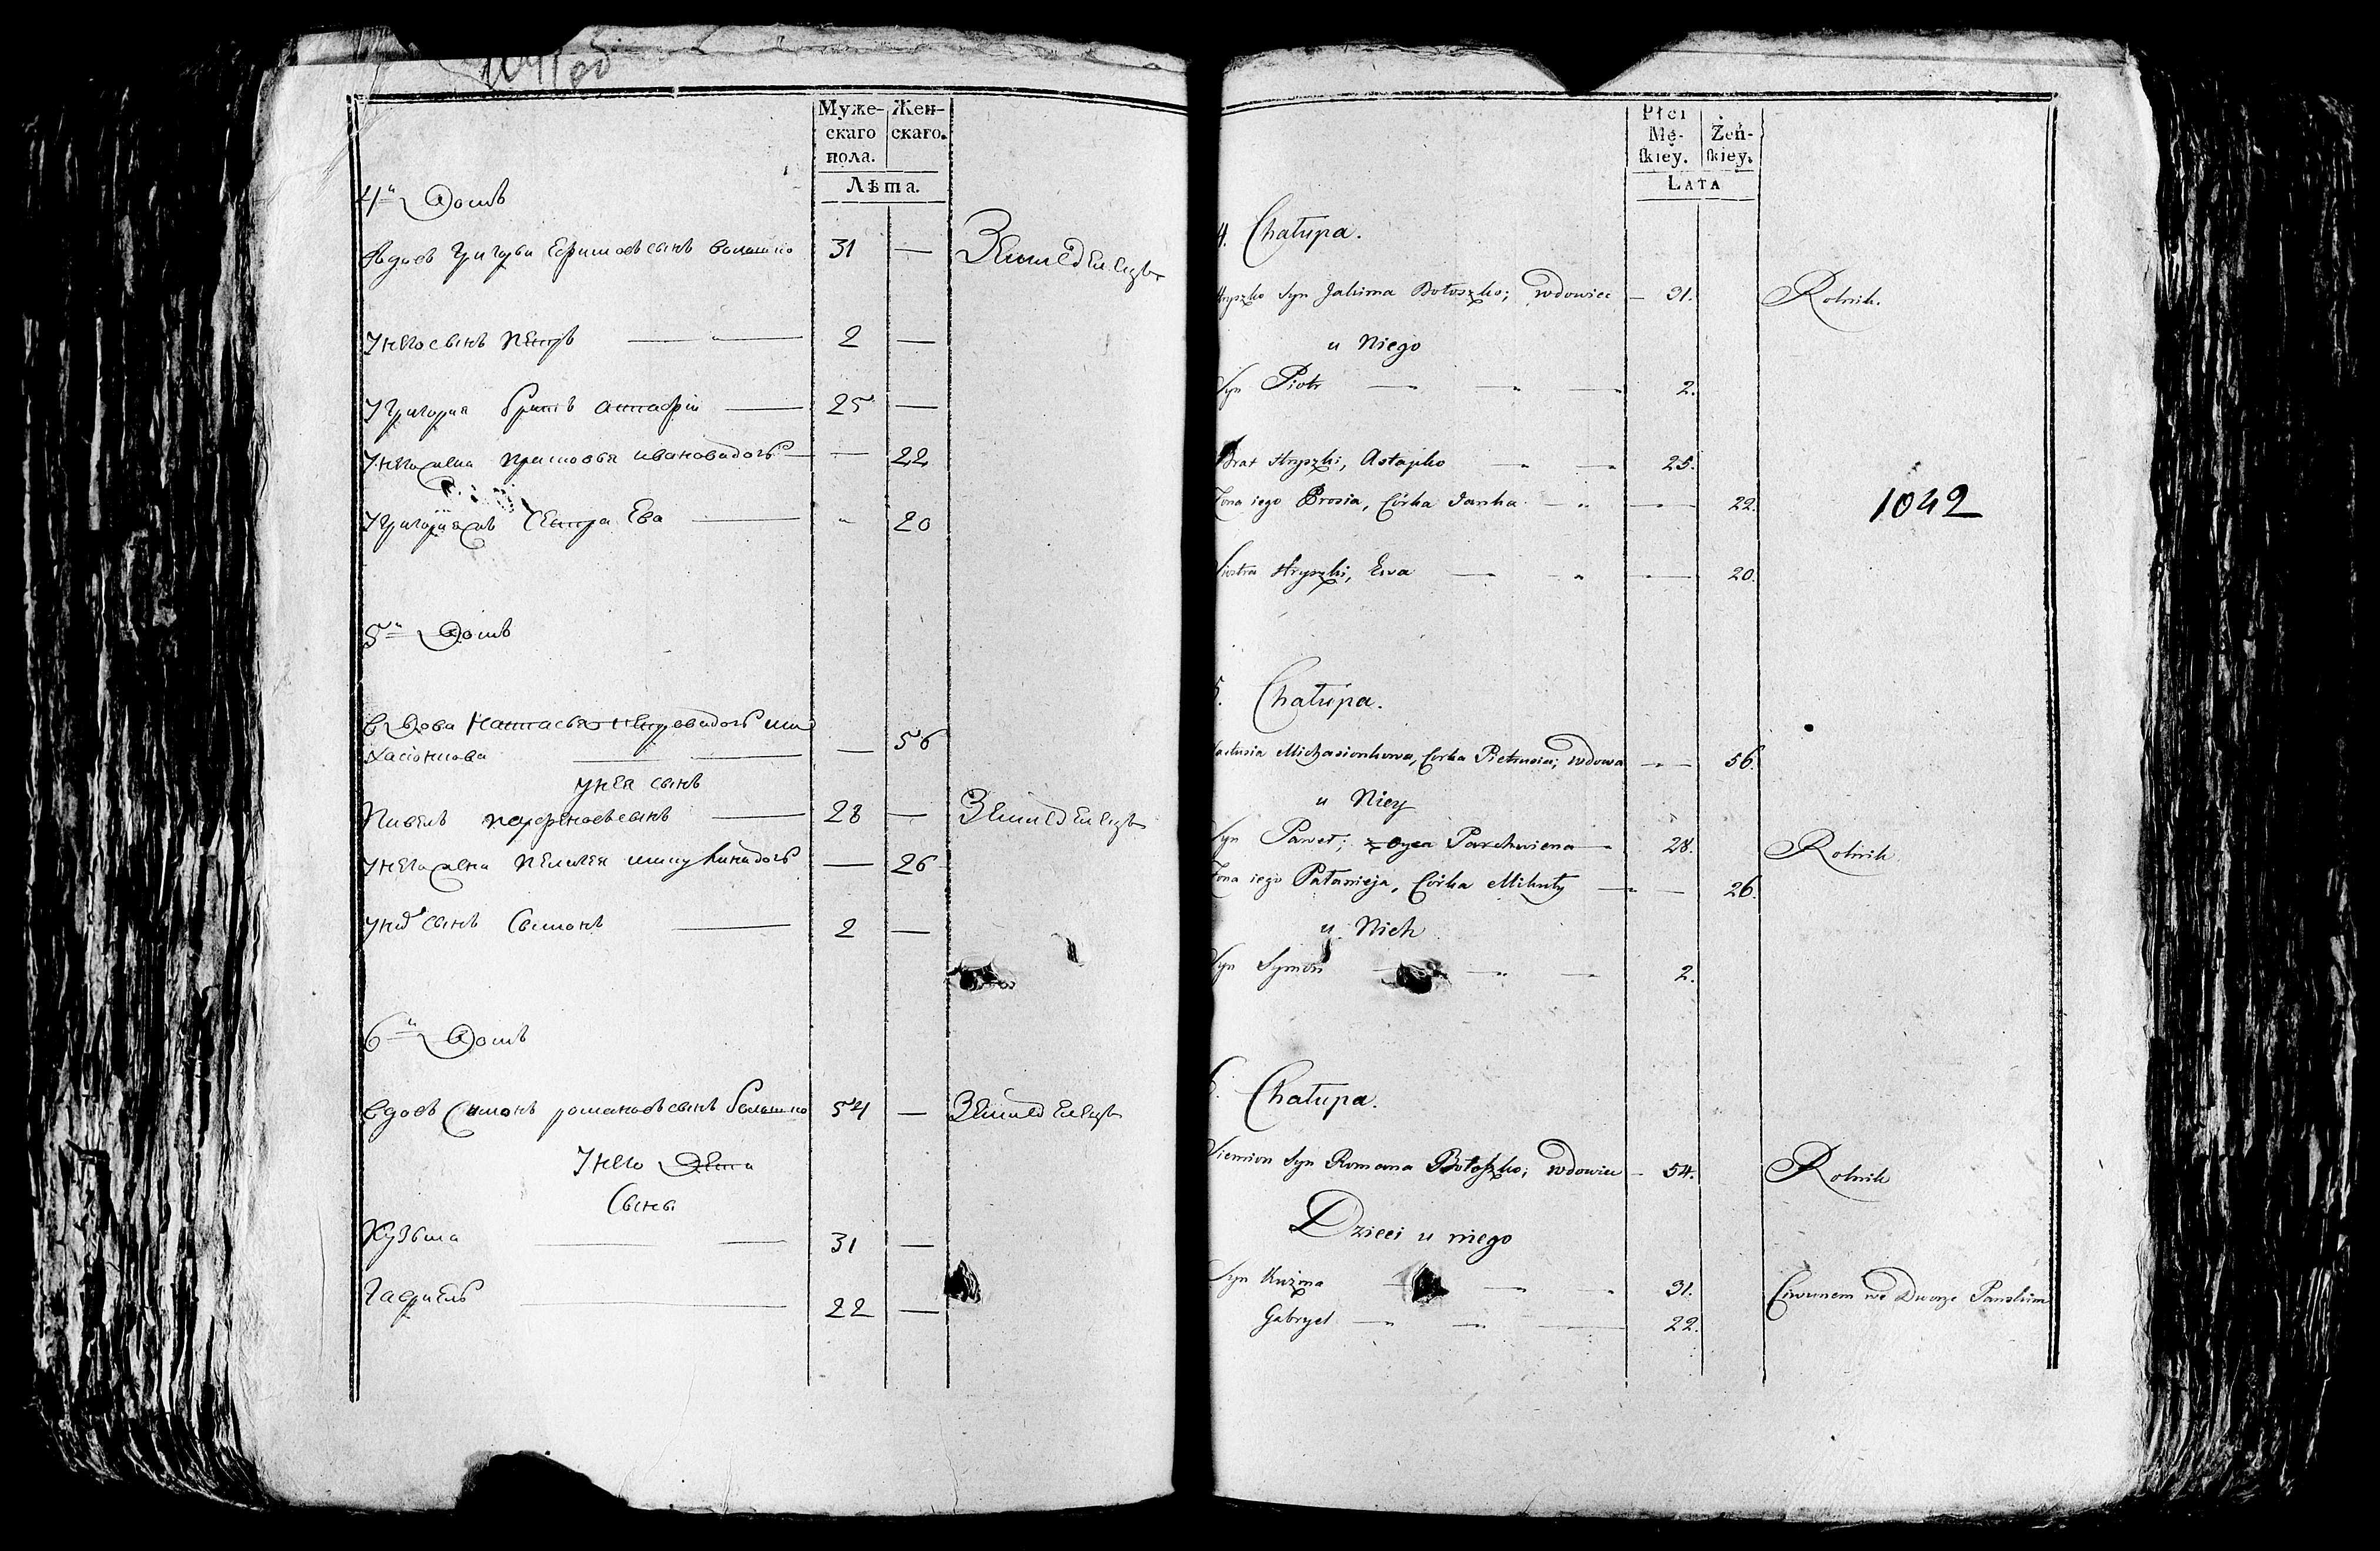 Муже-
скаго
пола.
Жен-
скаго.
Лѣта.
4й Домъ
Вдовъ Григори Ефимовъ сынъ Болошко 31 — Земледѣлецъ
У него сынъ Петръ — 2 —
У Григория братъ Астафiй — 25 —
У него жена Прасковья Иванова дочь — — 22
У Григория сестра Ева — „ 20
5й Домъ
Вдова Настасья Петрова дочь Ми
хасiонкова — — 56
У нея сынъ
Павелъ Парфеновъ сынъ — 28 — Земледѣлецъ
У него жена Пелагея Микулина дочь — 26
У них сынъ Сымонъ — 2 —
6й Домъ
Вдовъ Симонъ Романовъ сынъ Болошко 54 — Земледѣлецъ
У него дѣти
Сыны
Кузьма — 31 —
Гаврiилъ — 22 —
Płci
Mę-
skiey.
Żeń-
skiey.
LATA
4. Chałupa.
Hryszko Syn Jakima Bołoszko; wdowiec — 31. Rolnik.
u Niego
Syn Piotr — „ — 2.
Brat Hryszki, Astapko — „ — 25.
Żona iego Prosia, Córka Janka — „ — 22.
1042
Siostra Hryszki, Ewa — „ — 20.
5. Chałupa.
Nastusia Michasionkowa, Corka Pietrusia; wdowa — 56.
u Niey
Syn Paweł; z oyca Parchwiena — 28. Rolnik
Żona iego Pałanieja, Córka Mikuły — 26.
u Nich
Syn Symon — „ — 2.
6. Chałupa.
Siemion Syn Romana Bołoszko; wdowiec — 54. Rolnik
Dzieci u niego
Syn Kuźma — „ — 31. Ciwunem we Dworze Pańskim
Gabryel — „ — 22.